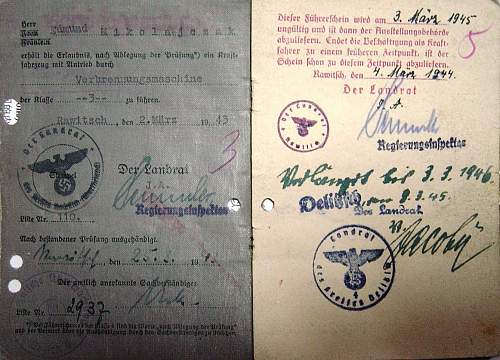 Herr
Frau
Fräulein
Edmund Mikolajczak
erhält die Erlaubnis, nach Ablegung der Prüfung*) ein Kraft-
fahrzeug mit Antrieb durch
Verbrennungsmaschine
der Klasse --3-- zu führen.
Rawitsch, den 2. März 1943
3
Der Landrat
Stempel
Der Landrat
J. A.
Semmler
Regierungsinspektor
Liste Nr. 110.
Nach bestandener Prüfung ausgehändigt.
den
Der amtlich anerkannte Sachverständige
Liste Nr. 2937
Dieser Führerschein wird am 3. März 1945
ungültig und ist dann der Ausstellungsbehörde
abzuliefern. Endet die Beschäftigung als Kraft-
fahrer zu einem früheren Zeitpunkt, ist der
Schein schon zu diesem Zeitpunkt abzuliefern.
5
Rawitsch, den 4. März 1944.
Der Landrat
J. A.
Der Landrat
Rawitsch
Semmler
Regierungsinspektor
Verlängert bis 3.3.1946
Delitzsch, den 8.3.45.
Der Landrat
Jacoby
Landrat
des Kreises Delitzsch
4